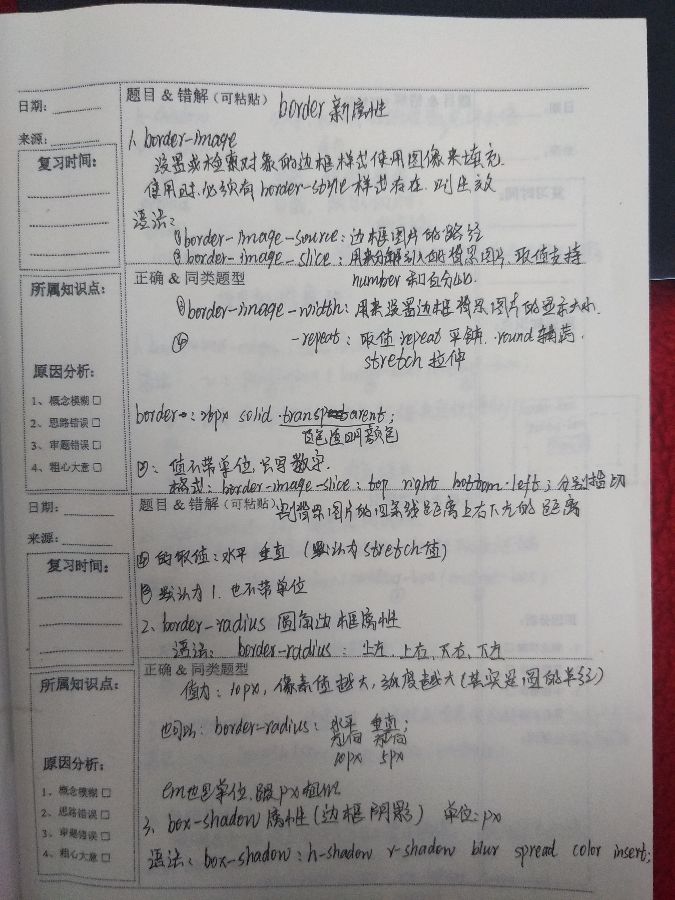 日期：
题目 & 错解（可粘贴） border 新属性
来源：
1、border-image
复习时间：
设置或检索对象的边框样式使用图像来填充.
使用时,必须有border-style样式存在.则生效
语法：
①border-image-source：边框图片的路径
②border-image-slice：用来分解引入的背景图片、取值支持
number和百分比.
所属知识点：
正确 & 同类题型
③border-image-width：用来设置边框背景图片的显示大小.
④ -repeat：取值repeat平铺. round
stretch 拉伸
原因分析：
1、概念模糊□
2、思路错误□
3、审题错误□
4、粗心大意□
border：20px solid transparent；
透明颜色
②：值不带单位,只写数字.
格式：border-image-slice：top right bottom left；分别指切
日期：
题目 & 错解（可粘贴） 割背景图片的四条线距离上右下左的距离
来源：
④的取值：水平 垂直（默认为stretch值）
复习时间：
③默认为1.也不带单位
2、border-radius 圆角边框属性
语法： border-radius：上左、上右、下右、下左
所属知识点：
正确 & 同类题型
值为：10px，像素值越大，弧度越大（其实是圆的半径）
也可以：border-radius：水平 垂直；
方向 方向
10px 5px
原因分析：
1、概念模糊□
2、思路错误□
3、审题错误□
4、粗心大意□
em也是单位,跟px
3、box-shadow属性（边框阴影） 单位：px
语法：box-shadow：h-shadow v-shadow blur spread color insert；